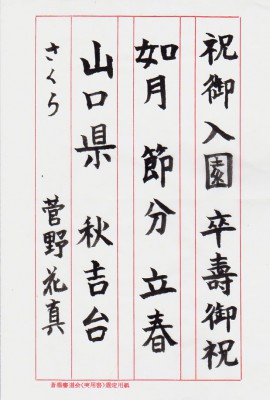 祝御入園卒壽御祝
如月 節分 立春
山口県 秋吉台
さくら 菅野花真